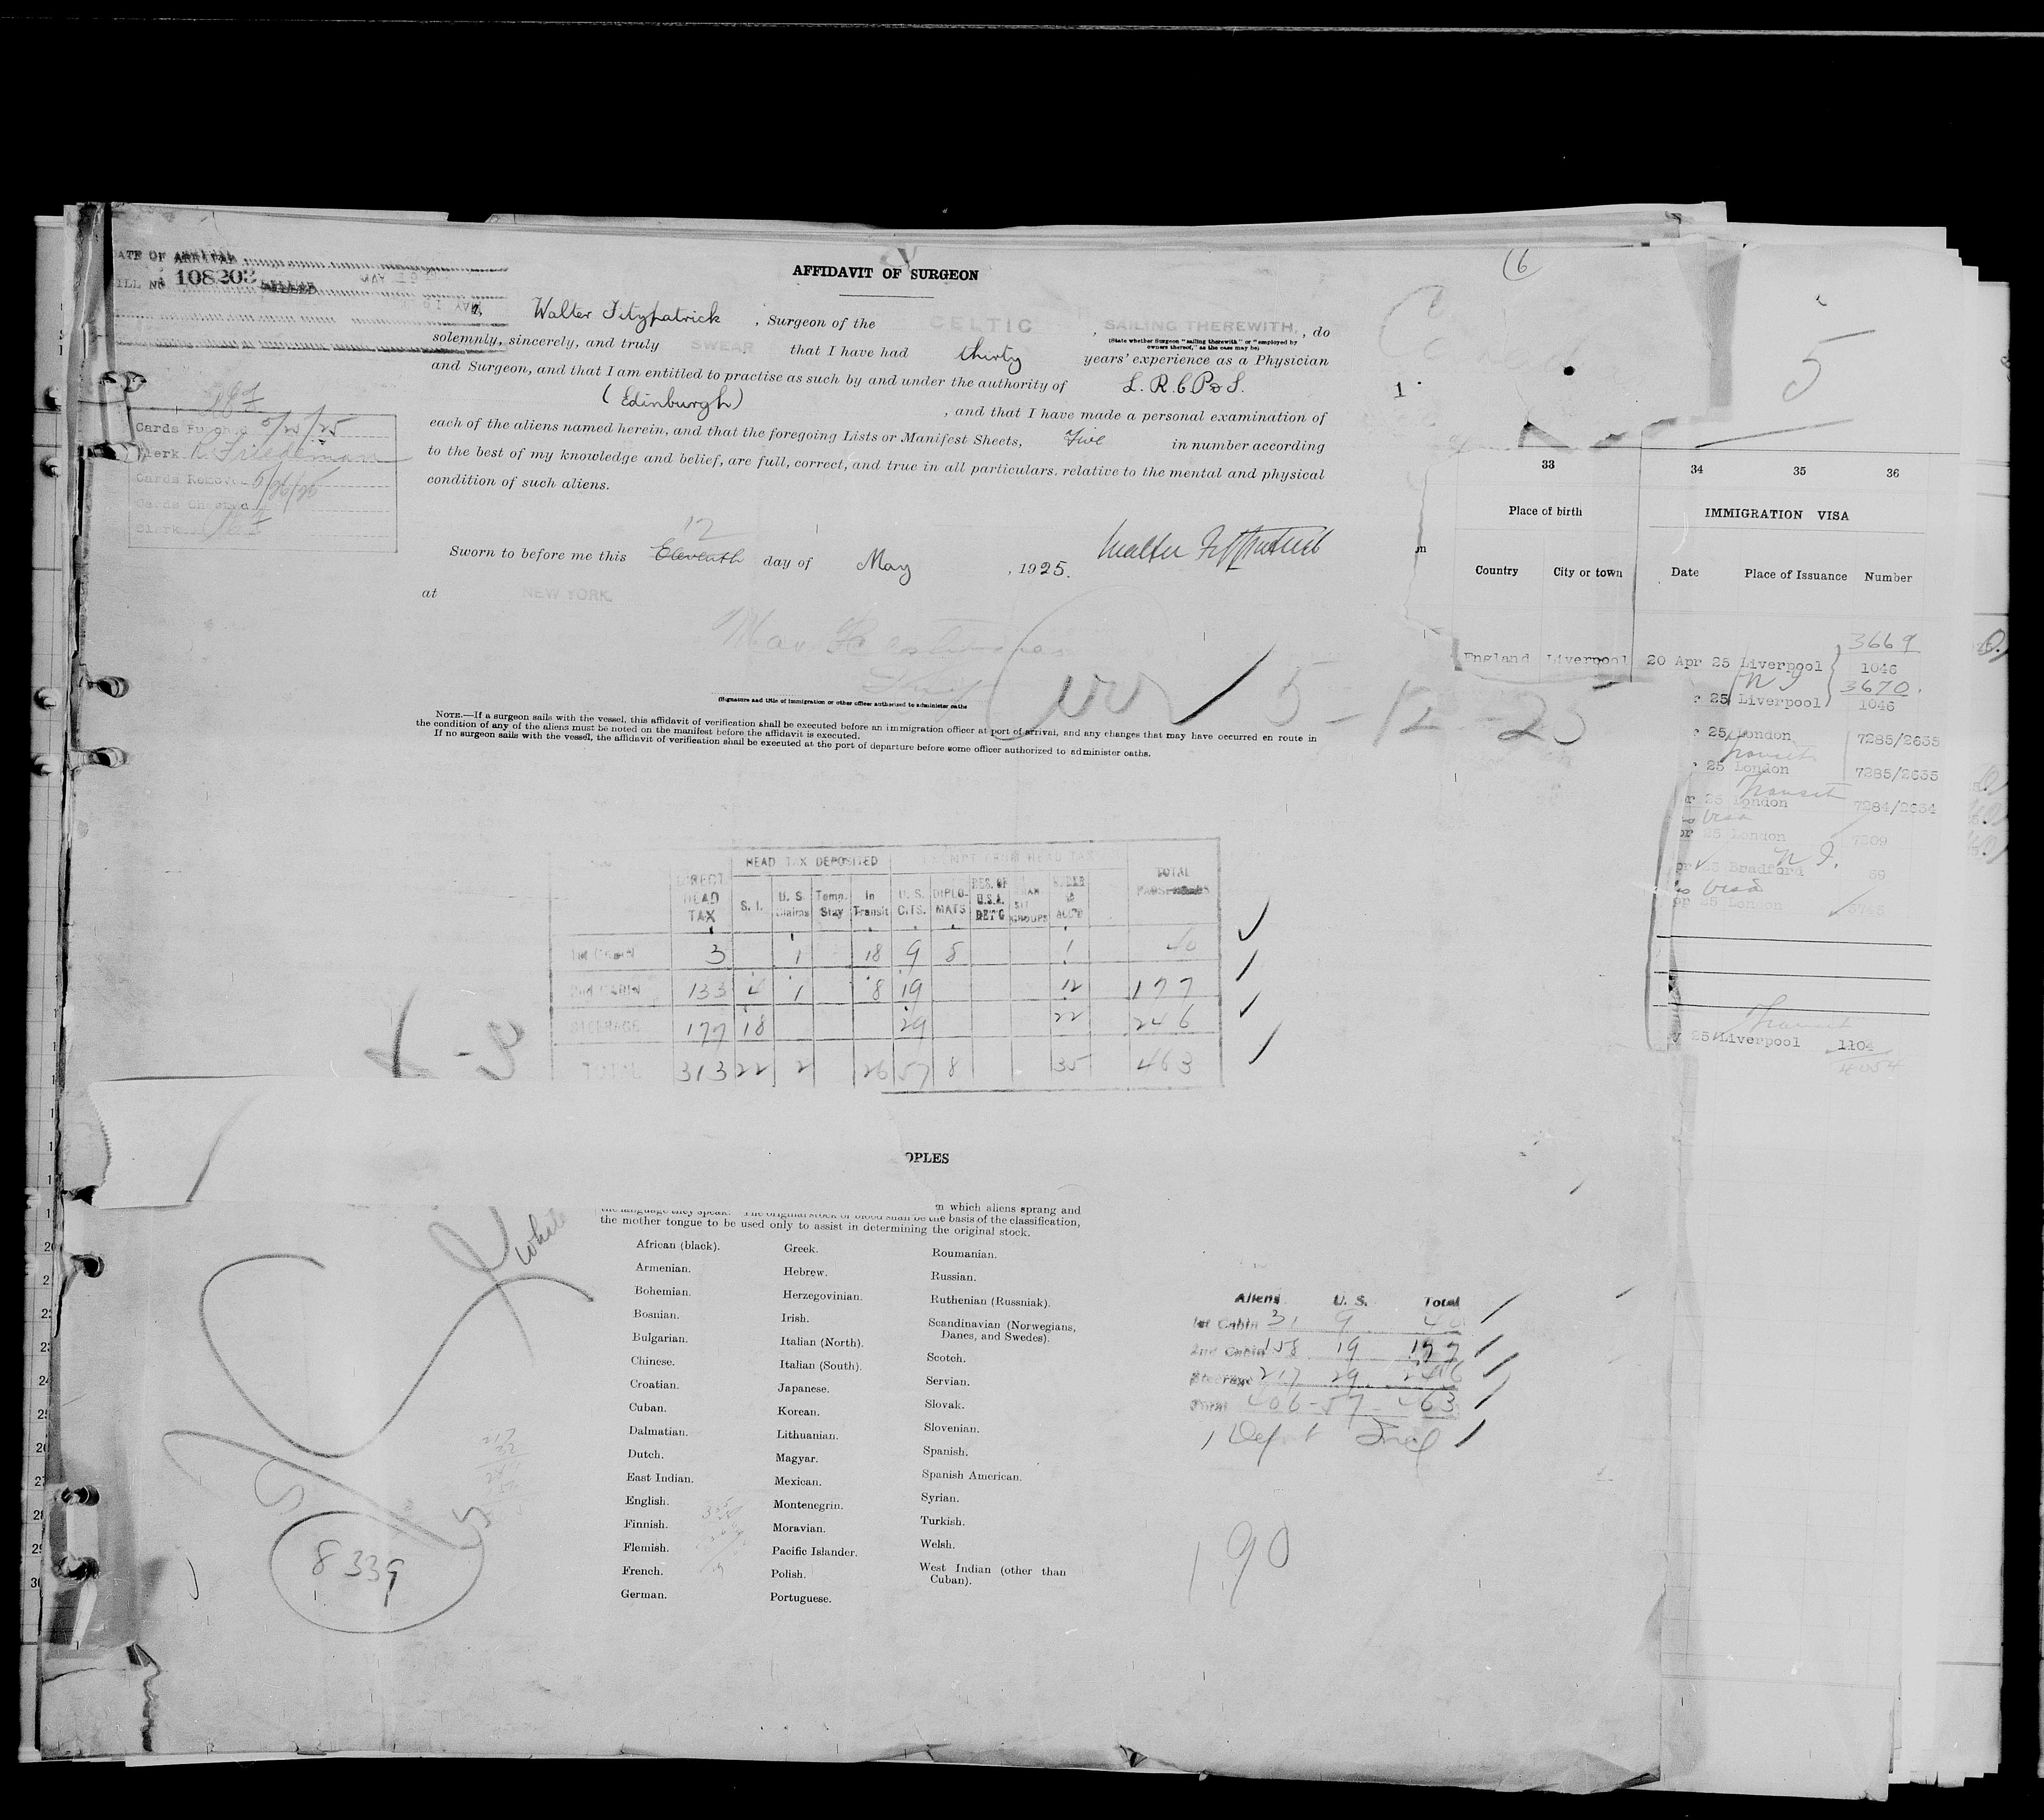 ATE OF ARRIVAL
ILL No 108203
MAY 19
AFFIDAVIT OF SURGEON
Walter Fitzpatrick , Surgeon of the CELTIC , SAILING THEREWITH. , do
(State whether Surgeon "sailing therewith" or "employed by
owners thereof," as the case may be)
solemnly, sincerely, and truly SWEAR that I have had thirty years' experience as a Physician
and Surgeon, and that I am entitled to practise as such by and under the authority of L. R. C. P & S.
(Edinburgh) , and that I have made a personal examination of
each of the aliens named herein, and that the foregoing Lists or Manifest Sheets, Five in number according
to the best of my knowledge and belief, are full, correct, and true in all particulars. relative to the mental and physical
condition of such aliens.
Cards Punched 5/25/25
Clerk R. Friedeman
Cards Removed 5/26/25
Cards Checked
Clerk
12
Sworn to before me this Eleventh day of May , 1925. Walter Fitzpatrick
at NEW YORK.
(Signature and title of immigration or other officer authorized to administer oaths
5-12-25
NOTE.—If a surgeon sails with the vessel, this affidavit of verification shall be executed before an immigration officer at port of arrival, and any changes that may have occurred en route in
the condition of any of the aliens must be noted on the manifest before the affidavit is executed.
If no surgeon sails with the vessel, the affidavit of verification shall be executed at the port of departure before some officer authorized to administer oaths.
HEAD TAX DEPOSITED EXEMPT FROM HEAD TAX
DIRECT HEAD TAX S. I. U. S. Claims Temp. Stay In Transit U. S. CITS. DIPLO-MATS RES. OF U.S.A. RET'G TRAN SIT GROUPS UNDER 16 ACC'D TOTAL PASSENGERS
1st CABIN 3 1 18 9 8 1 40
2nd CABIN 133 4 1 8 19 12 177
STEERAGE 177 18 29 22 246
TOTAL 313 22 2 26 57 8 35 463
OPLES
m which aliens sprang and
the language they speak. The original stock or blood shall be the basis of the classification,
the mother tongue to be used only to assist in determining the original stock.
African (black). Greek. Roumanian.
Armenian. Hebrew. Russian.
Bohemian. Herzegovinian. Ruthenian (Russniak).
Bosnian. Irish. Scandinavian (Norwegians,
Danes, and Swedes).
Bulgarian. Italian (North).
Chinese. Italian (South). Scotch.
Croatian. Japanese. Servian.
Cuban. Korean. Slovak.
Dalmatian. Lithuanian. Slovenian.
Dutch. Magyar. Spanish.
East Indian. Mexican. Spanish American.
English. Montenegrin. Syrian.
Finnish. Moravian. Turkish.
Flemish. Pacific Islander. Welsh.
French. Polish. West Indian (other than
Cuban).
German. Portuguese.
White
8339
Aliens U. S. Total
1st Cabin 31 9 40
2nd Cabin 158 19 177
Steerage 217 29 246
Total 406-57-463
190
(6
5
1
33 34 35 36
Place of birth IMMIGRATION VISA
Country City or town Date Place of Issuance Number
3669
England Liverpool 20 Apr 25 Liverpool 1046
3670
r 25 Liverpool 1046
r 25 London 7285/2635
Transit
r 25 London 7285/2635
Transit
or 25 London 7284/2634
Visa
or 25 London 7309
or 25 Bradford 69
no Visa
or 25 London 3743
Transit
y 25 Liverpool 1104
4054